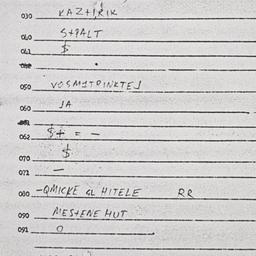 030 KAZTIRIK
040 S+PALT
041 $
050 VOSMITPINKTEJ
060 JA
062 $+ = -
070 $
071 -
080 -QMICKE GL HITELE RR
090 MESTENE HUT
091 O